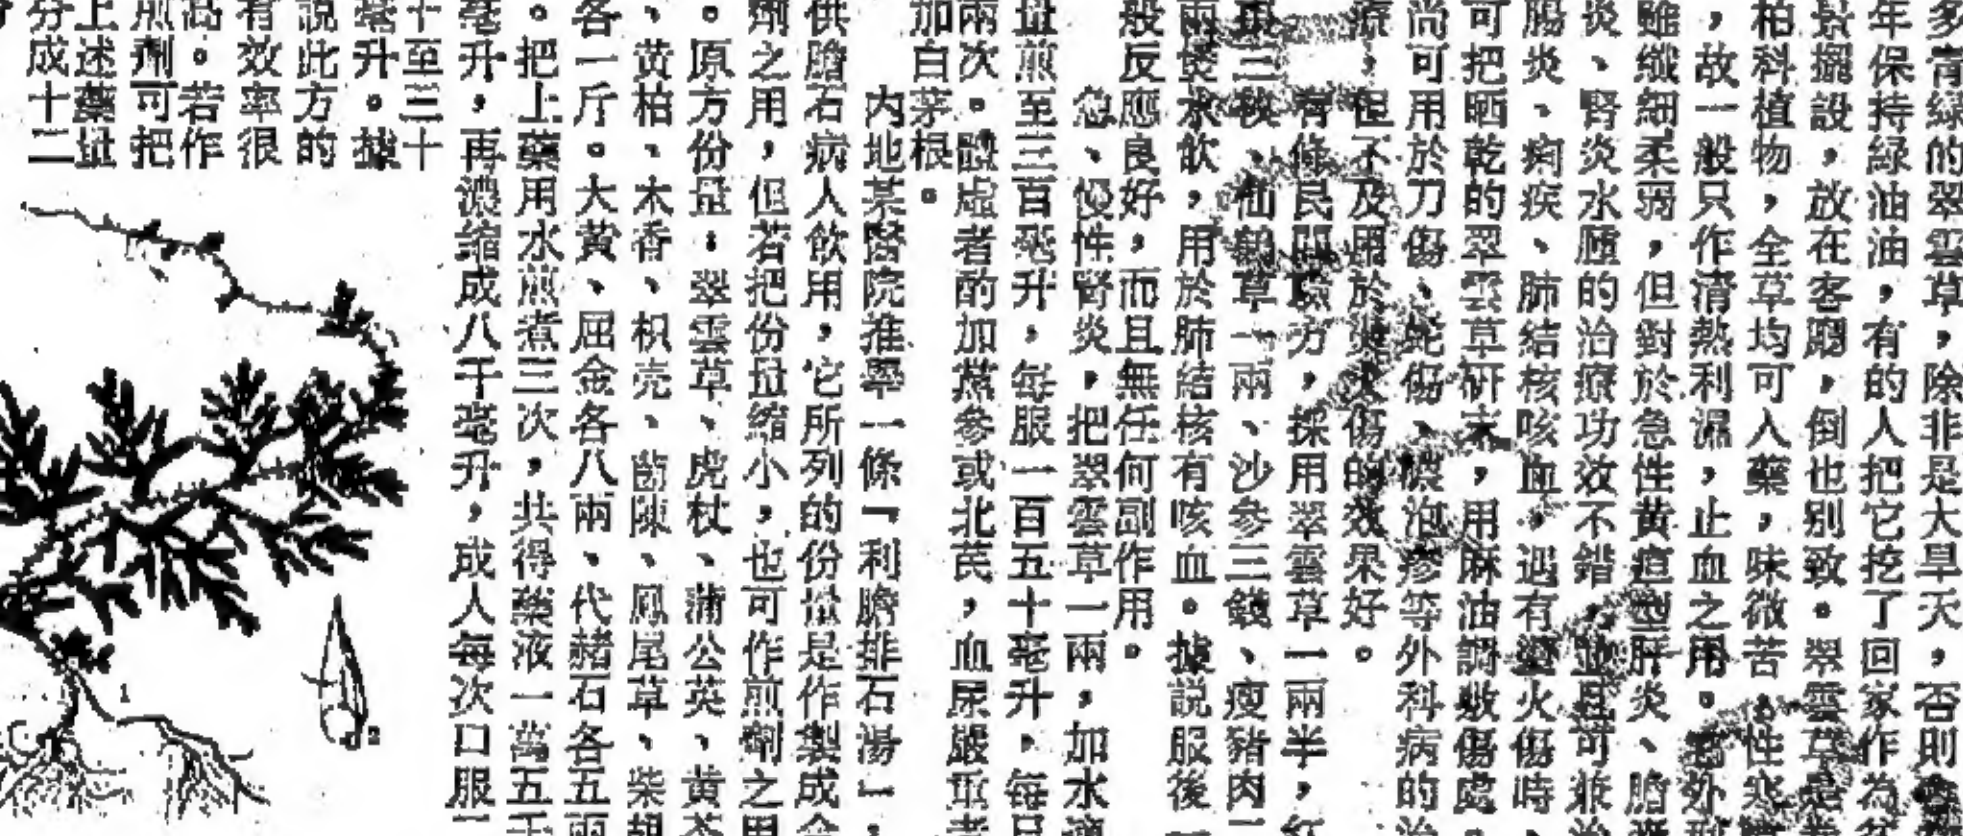 多青綠的翠雲草，除非是大旱天，否則
年保持綠油油，有的人把它挖了回家作為
景擺設，放在客廳，倒也別致。翠雲草是
柏科植物，全草均可入藥，味微苦，性寒
，故一般只作清熱利濕，止血之用。外
雖纖細柔弱，但對於急性黃疸型肝炎、膽
炎、腎炎水腫的治療功效不錯，並且可兼治
腸炎、痢疾、肺結核咳血，遇有燙火傷時、
可把晒乾的翠雲草研末，用麻油調敷傷處。
尚可用於刀傷、蛇傷、膿泡疹等外科病的治
療，但不及用於燙火傷的效果好。
有條民間驗方，採用翠雲草一兩半，紅
三枚、仙鶴草一兩、沙參三錢、瘦豬肉二
兩煲水飲，用於肺結核有咳血。據説服後一
般反應良好，而且無任何副作用。
急、慢性腎炎，把翠雲草一兩，加水適
量煎至三百毫升，每服一百五十毫升，每日
兩次。體虛者酌加黨參或北芪，血尿嚴重者
加白茅根。
內地某醫院推舉一條「利膽排石湯」，
供膽石病人飲用，它所列的份量是作製成合
劑之用，但若把份量縮小，也可作煎劑之用
。原方份量：翠雲草、虎杖、蒲公英、黃芩
、黃柏、木香、枳壳、茵陳、鳳尾草、柴胡
各一斤。大黃、屈金各八兩、代赭石各五兩
。把上藥用水煎煮三次，共得藥液一萬五千
毫升，再濃縮成八千毫升，成人每次口服二
十至三十
毫升。據
説此方的
有效率很
高。若作
煎劑可把
上述藥量
分成十二
1
2